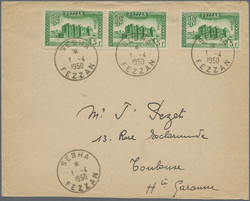 SEBHA
1-4
1950
FEZZAN
SEBHA
1-4
1950
FEZZAN
SEBHA
1-4
1950
FEZZAN
Mr J. Dezet
13, Rue
Toulouse
Hte Garonne
SEBHA
1-4
1950
FEZZAN